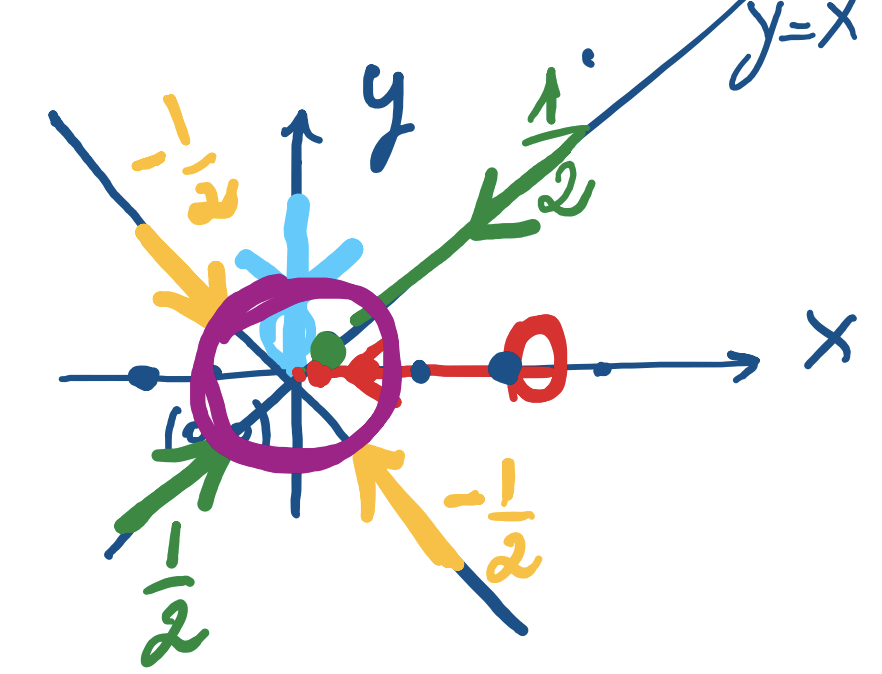 y = x
y
1
2
- 1
2
0
x
0
(0,0)
- 1
2
1
2